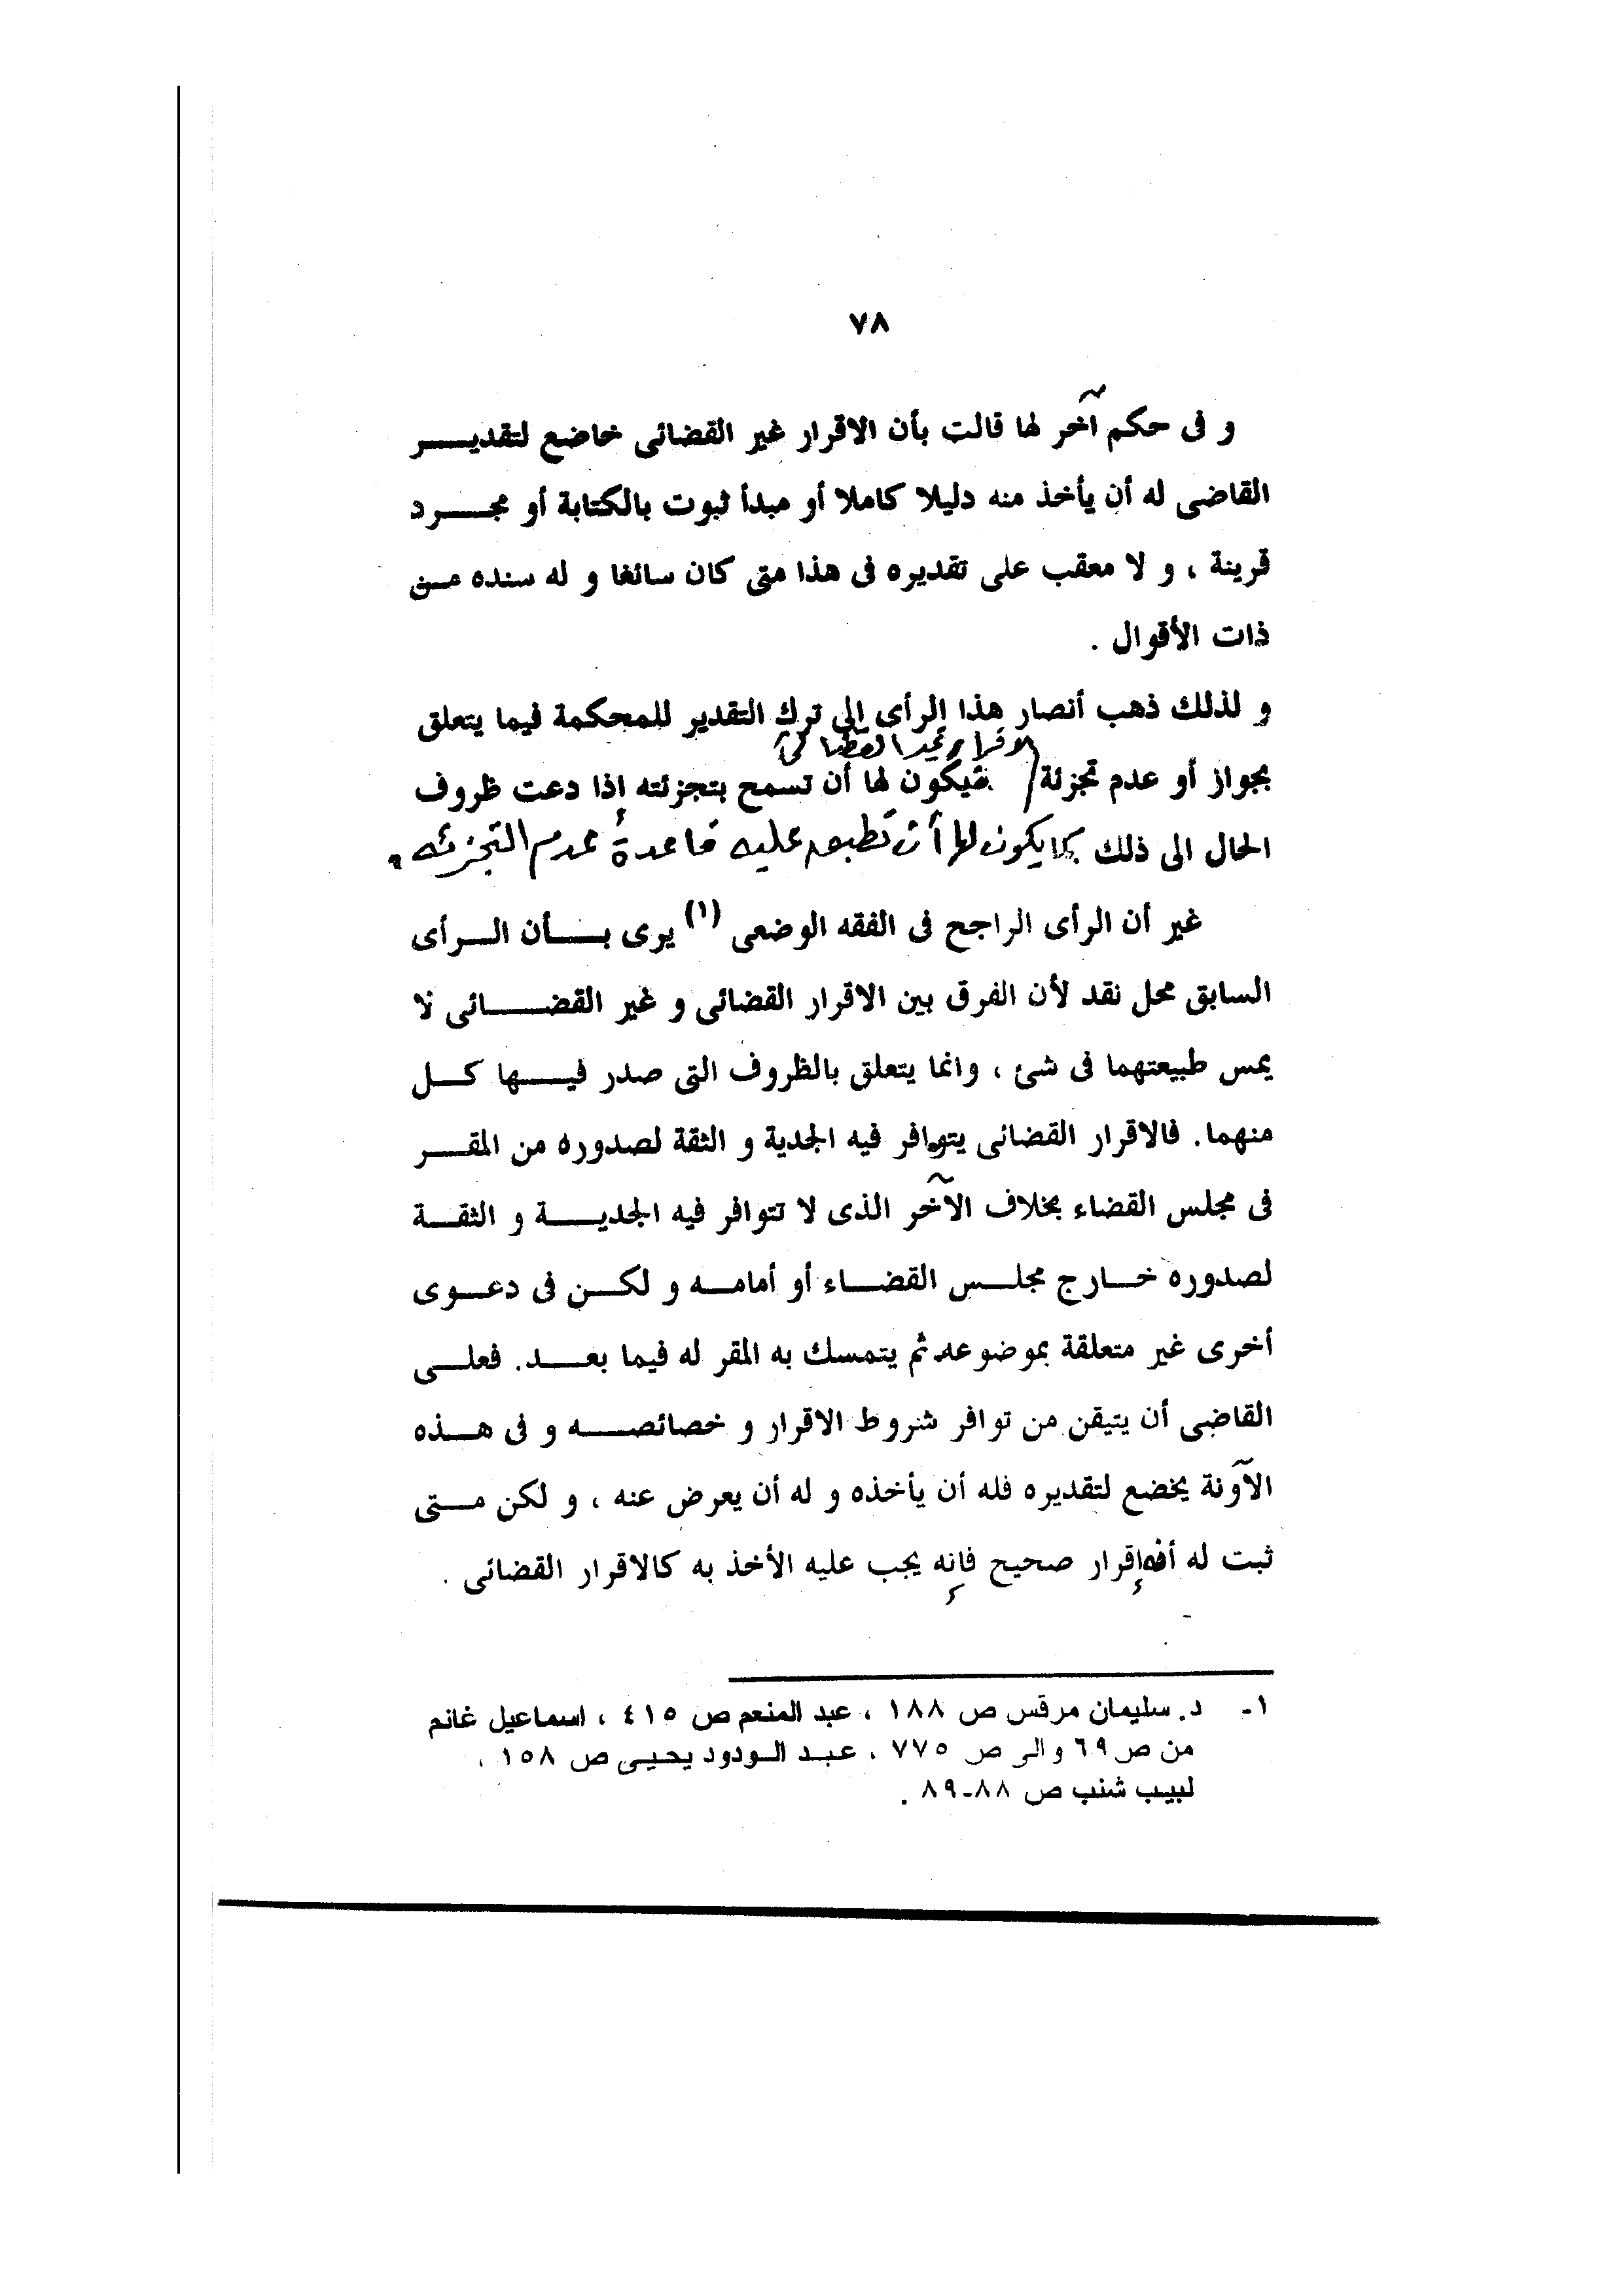 ٧٨
و فى حكم آخر لها قالت بأن الاقرار غير القضائى خاضع لتقديـــر
القاضى له أن يأخذ منه دليلا كاملا أو مبدأ ثبوت بالكتابة أو مجـــرد
قرينة ، و لا معقب على تقديره فى هذا متى كان سائغا و له سنده مـن
ذات الأقوال .
و لذلك ذهب أنصار هذا الرأى إلى ترك التقدير للمحكمة فيما يتعلق
الاقرار غير القضائى
بجواز أو عدم تجزئة فيكون لها أن تسمح بتجزئته إذا دعت ظروف
الحال الى ذلك كما يكون لها أن تطبق عليه قاعدة عدم التجزئه .
غير أن الرأى الراجح فى الفقه الوضعى (١) يرى بــأن الـرأى
السابق محل نقد لأن الفرق بين الاقرار القضائى و غير القضـــائى لا
يمس طبيعتهما فى شئ ، وانما يتعلق بالظروف التى صدر فيــها كـل
منهما. فالاقرار القضائى يتوافر فيه الجدية و الثقة لصدوره من المقـر
فى مجلس القضاء بخلاف الآخر الذى لا تتوافر فيه الجديــة و الثقـة
لصدوره خـارج مجلـس القضـاء أو أمامـه و لكـن فى دعـوى
أخرى غير متعلقة بموضوعه ثم يتمسك به المقر له فيما بعــد. فعلـى
القاضى أن يتيقن من توافر شروط الاقرار و خصائصــه و فى هـذه
الآونة يخضع لتقديره فله أن يأخذه و له أن يعرض عنه ، و لكن مـتى
ثبت له أنه إقرار صحيح فإنه يجب عليه الأخذ به كالاقرار القضائى .
١- د. سليمان مرقس ص ١٨٨ ، عبد المنعم ص ٤١٥ ، اسماعيل غانم
من ص ٦٩ والى ص ٧٧٥ ، عبـد الـودود يحيـى ص ١٥٨ ،
لبيب شنب ص ٨٨-٨٩ .